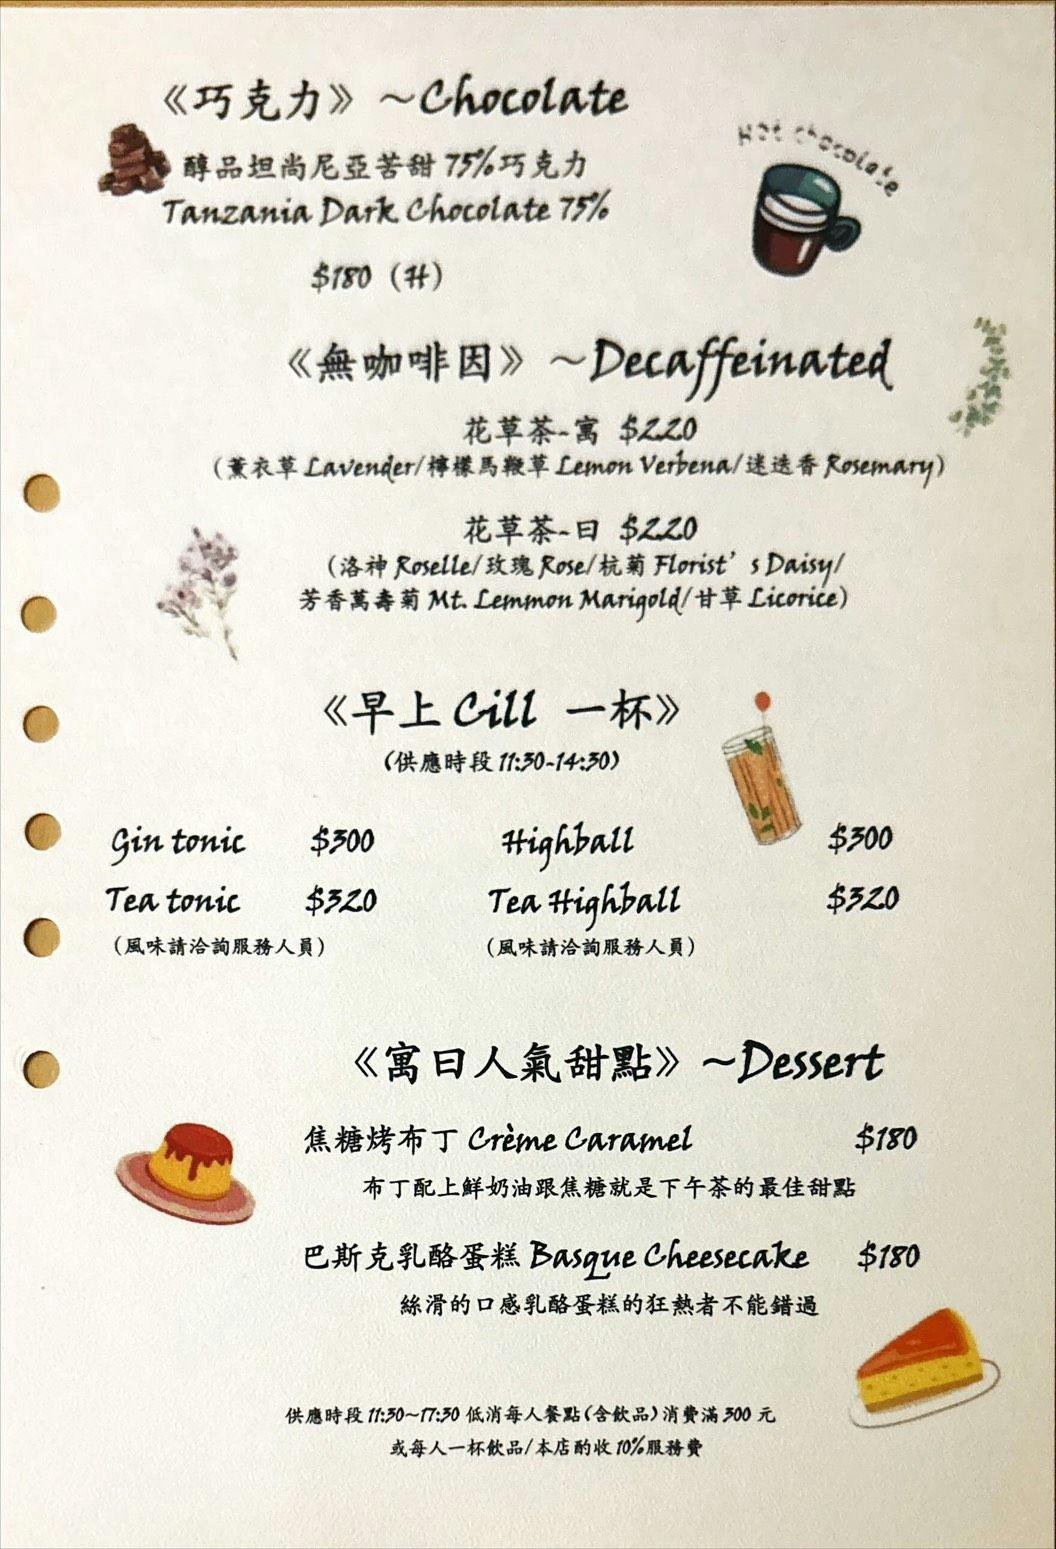 《巧克力》～Chocolate
Hot chocolate
醇品坦尚尼亞苦甜 75%巧克力
Tanzania Dark Chocolate 75%
$180（H）
《無咖啡因》～Decaffeinated
花草茶-寓 $220
（薰衣草 Lavender/檸檬馬鞭草 Lemon Verbena/迷迭香 Rosemary）
花草茶-日 $220
（洛神 Roselle/玫瑰 Rose/杭菊 Florist’s Daisy/
芳香萬壽菊 Mt. Lemmon Marigold/甘草 Licorice）
《早上 Cill 一杯》
（供應時段 11:30-14:30）
Gin tonic $300 Highball $300
Tea tonic $320 Tea Highball $320
（風味請洽詢服務人員） （風味請洽詢服務人員）
《寓日人氣甜點》～Dessert
焦糖烤布丁 Crème Caramel $180
布丁配上鮮奶油跟焦糖就是下午茶的最佳甜點
巴斯克乳酪蛋糕 Basque Cheesecake $180
絲滑的口感乳酪蛋糕的狂熱者不能錯過
供應時段 11:30~17:30 低消每人餐點(含飲品)消費滿 300 元
或每人一杯飲品/本店酌收 10%服務費